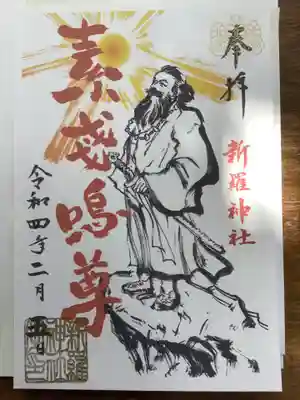 奉拝
新羅神社
素戔嗚尊
令和四年二月五日